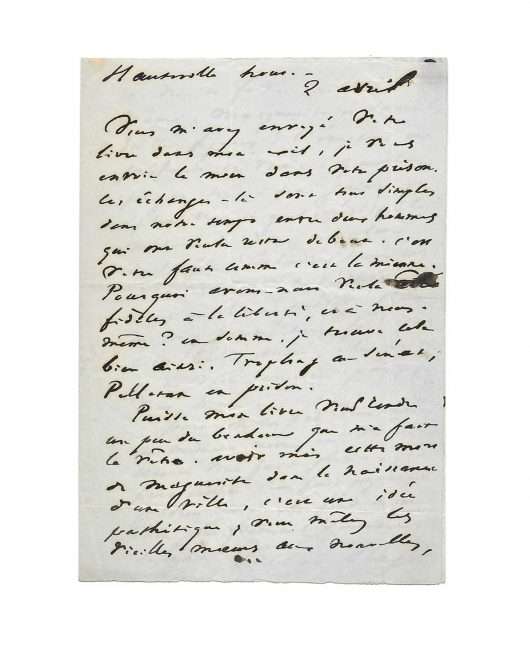 Hauteville house. –
2 avril
Vous m'avez envoyé votre
livre dans mon exil, je vous
envoie le mien dans votre prison.
Ces échanges-là sont tous simples
dans notre temps entre deux hommes
qui ont voulu rester debout. C'est
votre faute comme c'est la mienne.
Pourquoi avons-nous voulu
fidèles à la liberté, et à nous-
même? en somme, je trouve cela
bien ainsi. Troplong au sénat,
Pelletan en prison.
Puisse mon livre vous rendre
un peu du bonheur que m'a fait
le vôtre. avoir mis cette mort
de marguerite dans la naissance
d'une ville, c'est une idée
pathétique; vous mêlez les
vieilles mœurs aux nouvelles,